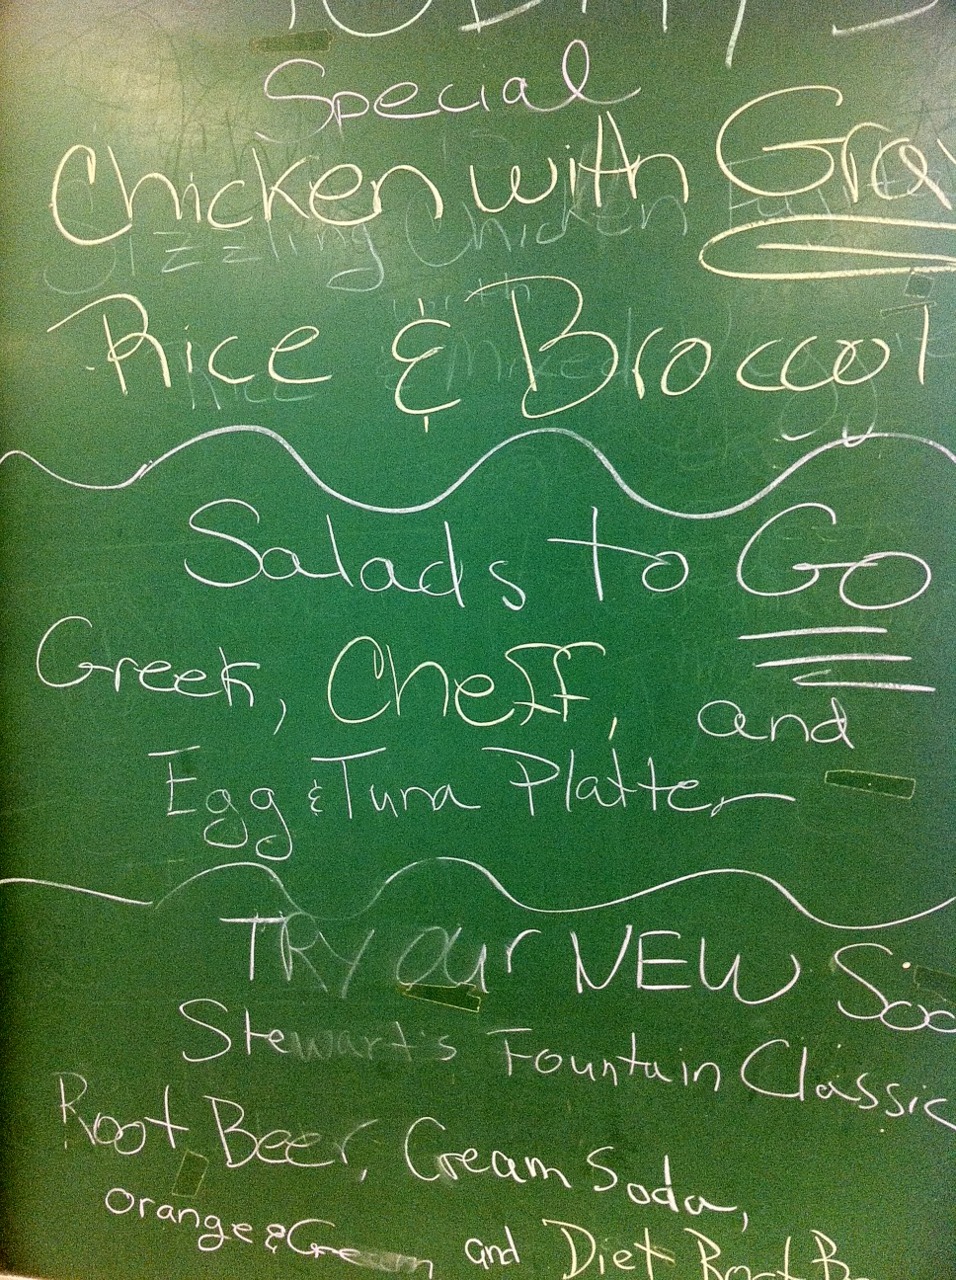 TODAY'S
Special
Chicken with Grav
Rice & Broccol
Salads to Go
Greek, Cheff, and
Egg & Tuna Platter
TRY our NEW Soo
Stewart's Fountain Classic
Root Beer, Cream Soda,
orange & Cream and Diet Root B